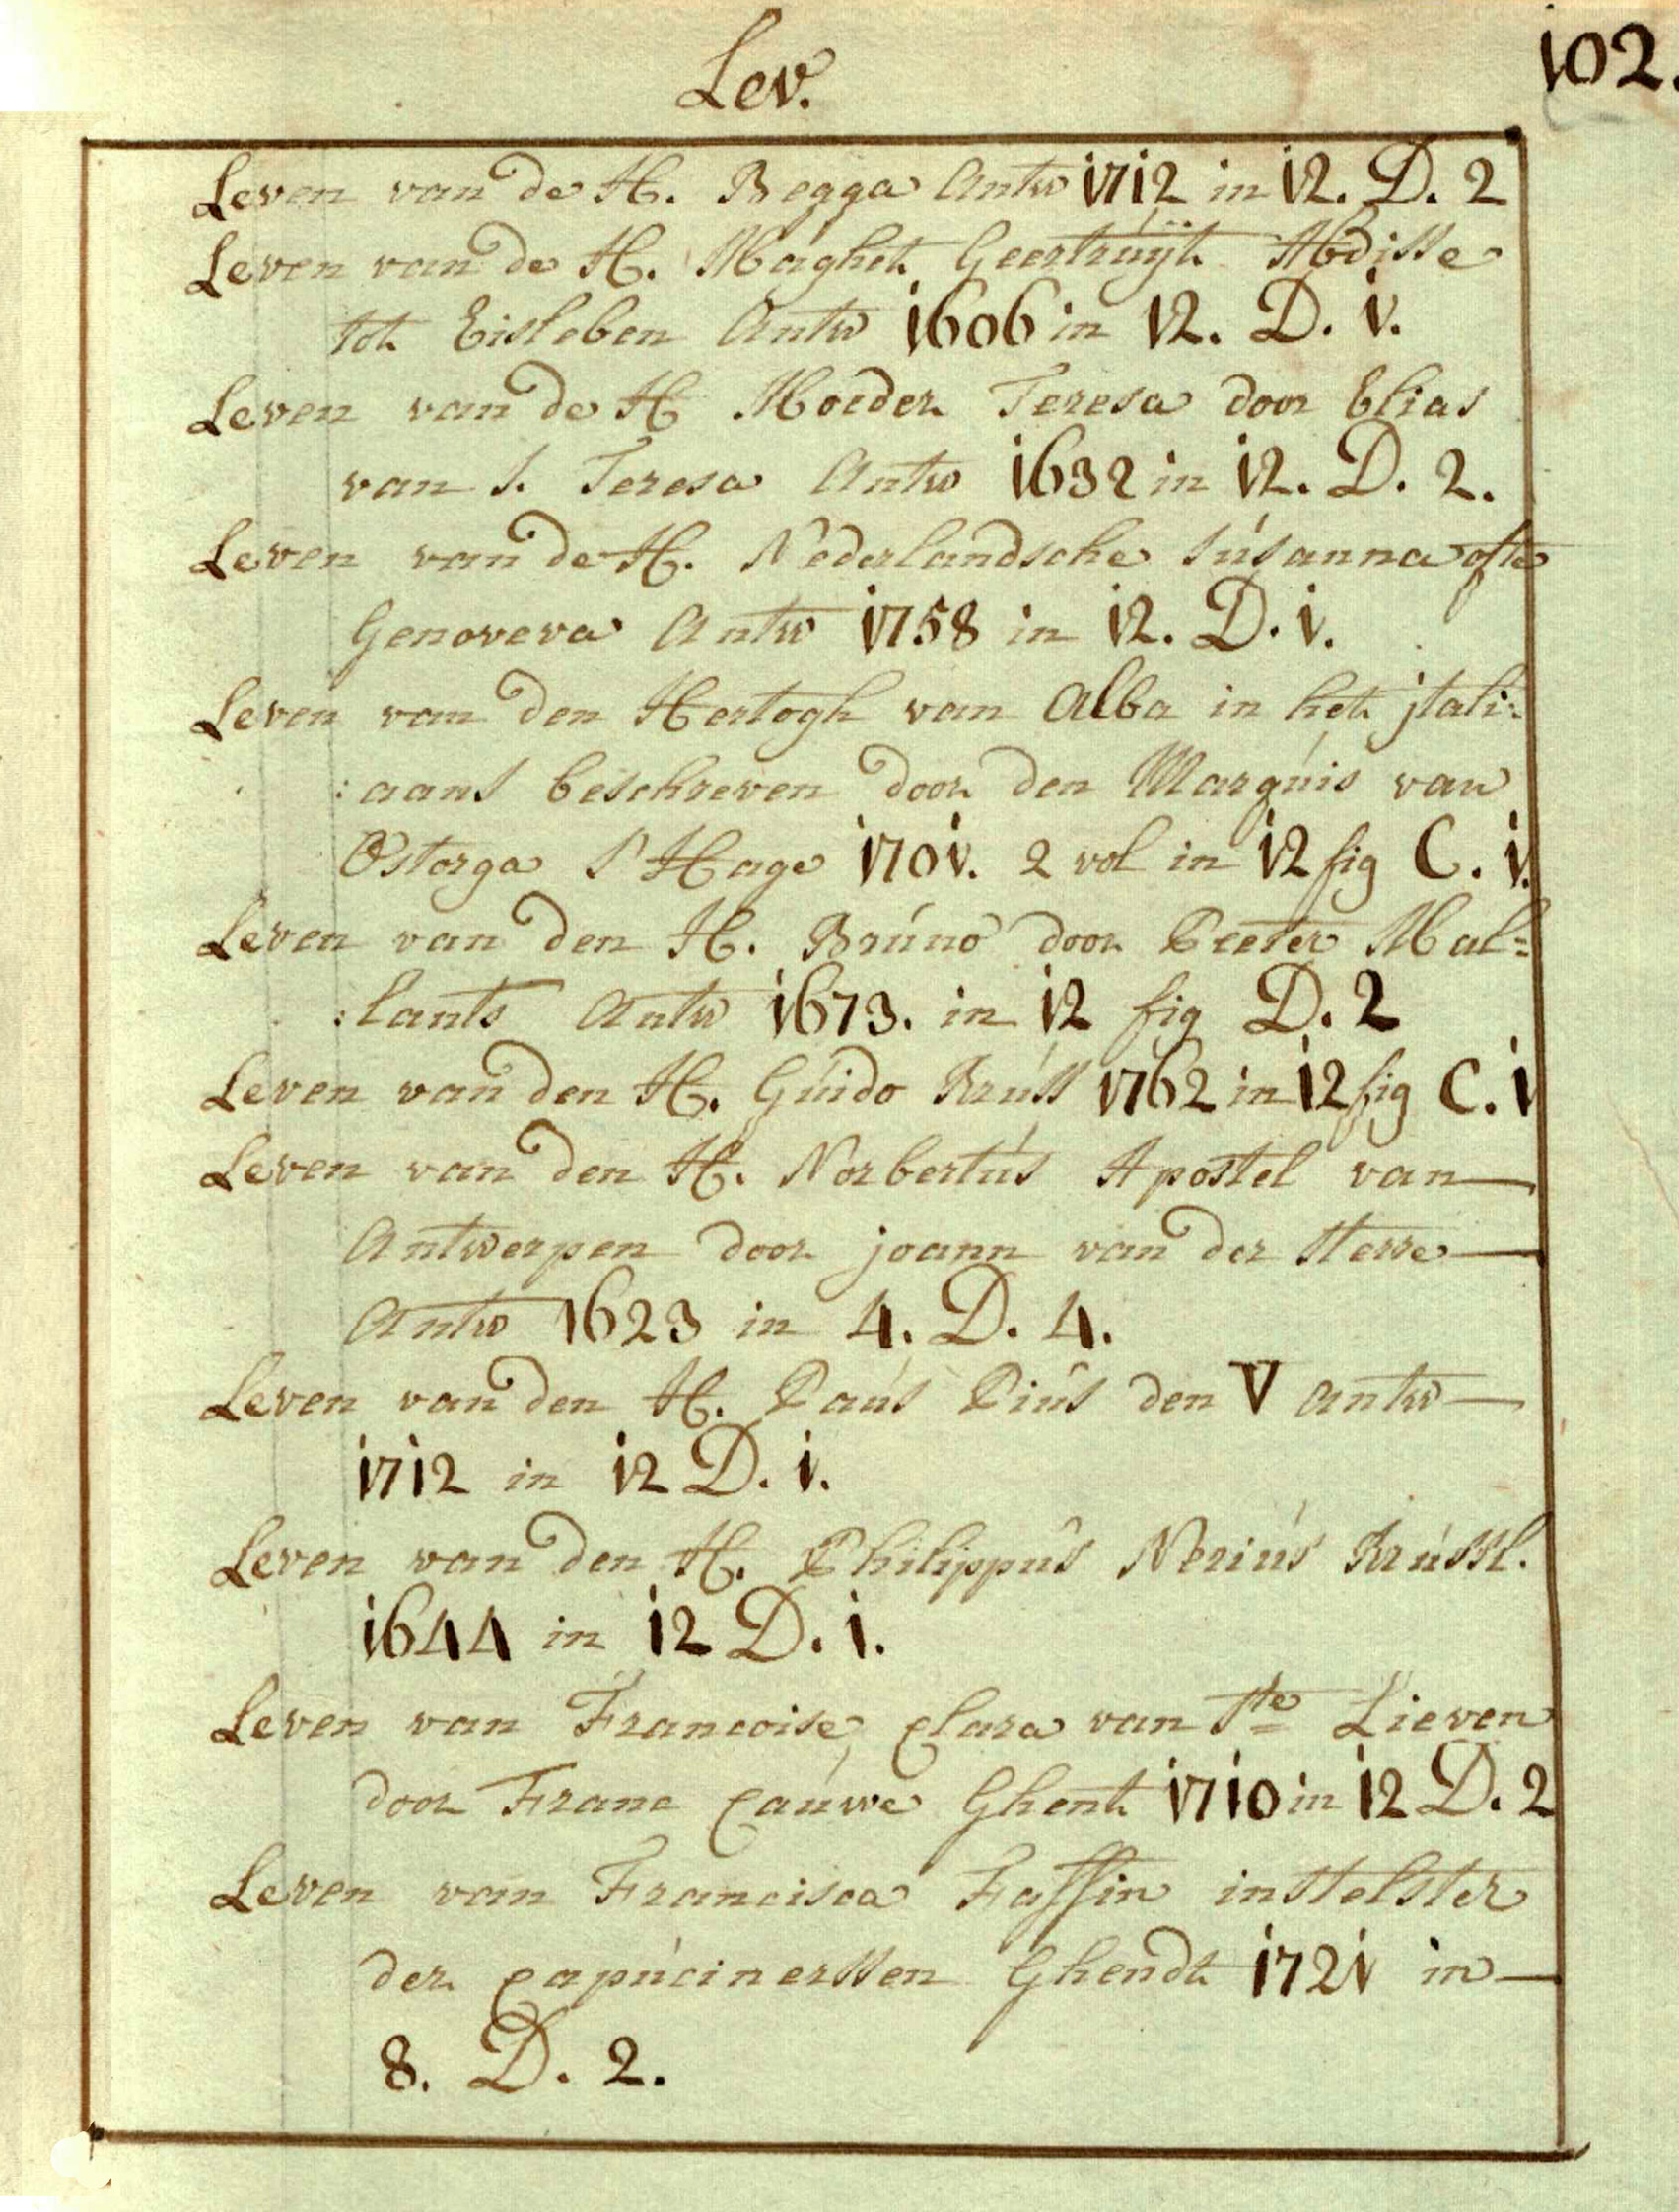 Lev.
102.
Leven van de H. Begga Antw 1712 in 12. D. 2
Leven van de H. Maghet Geertruÿt Abdisse
tot Eisleben Antw 1606 in 12. D. 1.
Leven van de H Moeder Teresa door Elias
van S. Teresa Antw 1632 in 12. D. 2.
Leven van de H. Nederlandsche Susanna ofte
Genoveva Antw 1758 in 12. D. 1.
Leven van den Hertogh van Alba in het jtali:
:aans beschreven door den Marquis van
Ostorga S'Hage 1701. 2 vol in 12 fig C. 1.
Leven van den H. Bruno door Peeter Mal=
:lants Antw 1673. in 12 fig D. 2
Leven van den H. Guido Bruss 1762 in 12 fig C. 1
Leven van den H. Norbertus Apostel van
Antwerpen door joann van der Sterre
Antw 1623 in 4. D. 4.
Leven van den H. Paus Pius den V Antw
1712 in 12 D. 1.
Leven van den H. Philippus Nerius Brussl.
1644 in 12 D. 1.
Leven van Francoise Clara van Ste Lieven
door Franc Cauwe Ghent 1710 in 12 D. 2
Leven van Francisca Taffin instelster
der capucinerssen Ghendt 1721 in
8. D. 2.